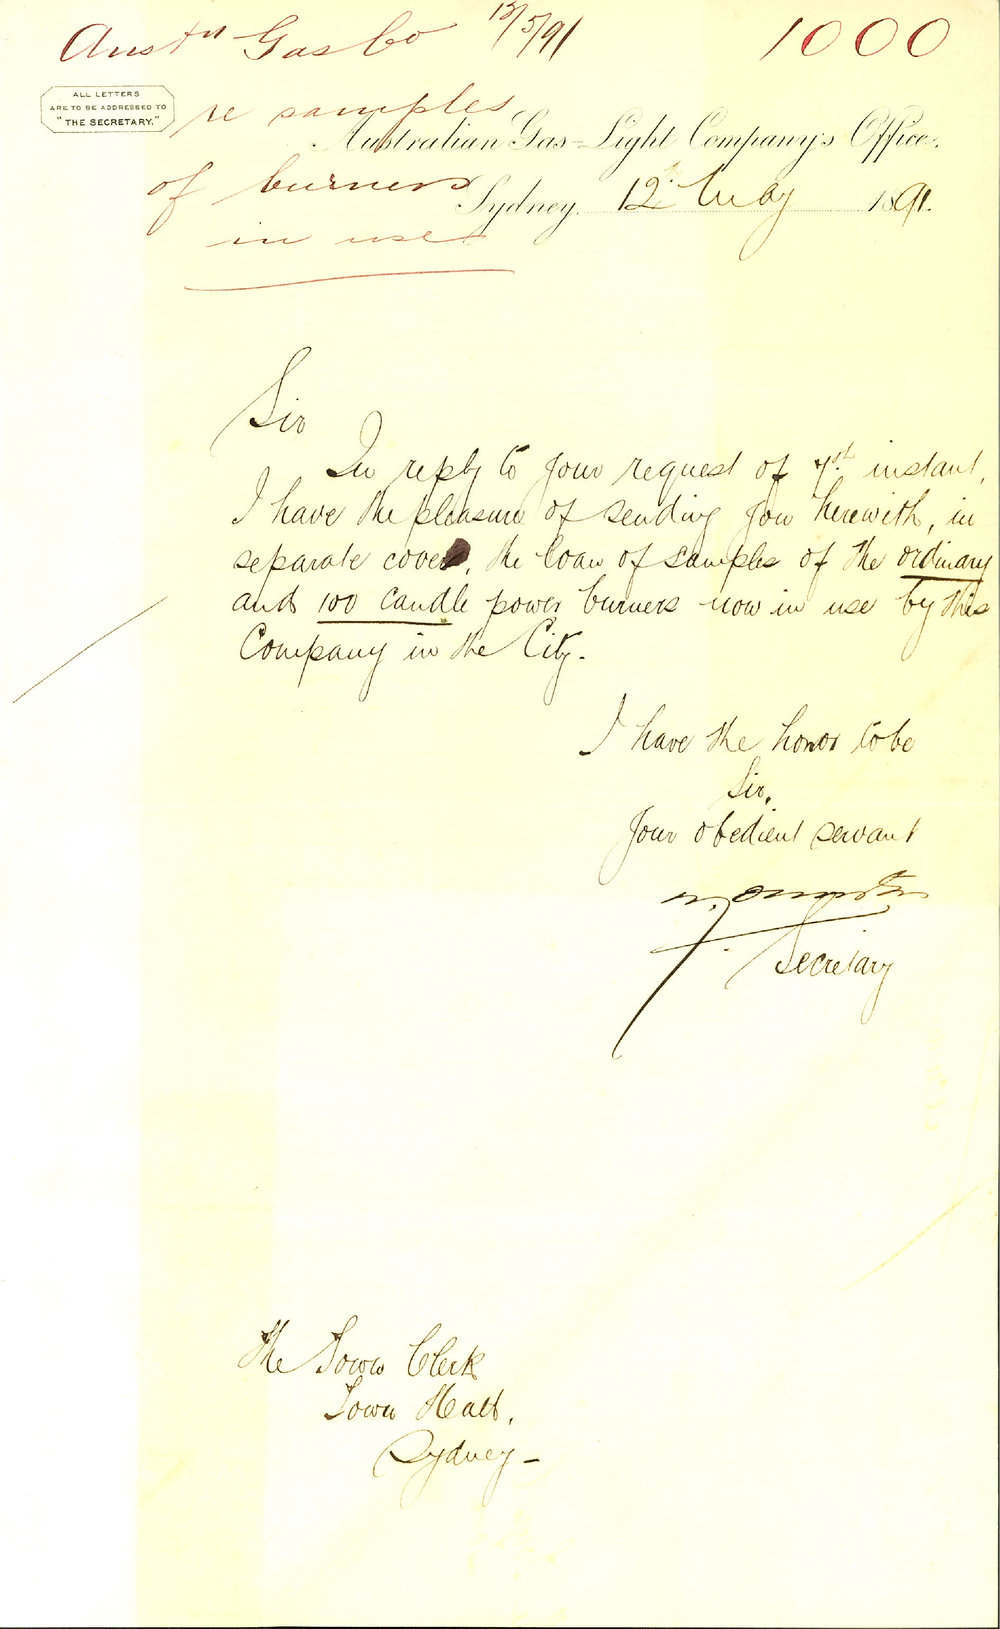 Austn Gas Co 12/5/91 1000
ALL LETTERS
ARE TO BE ADDRESSED TO
"THE SECRETARY."
re samples
Australian Gas-Light Company's Office.
of burners
Sydney. 12th May 1891.
in use
Sir
In reply to your request of instant,
I have the pleasure of sending you herewith, in
separate cover, the loan of samples of the ordinary
and 100 candle power burners now in use by this
Company in the City.
I have the honor to be
Sir,
Your obedient servant
Secretary
The Town Clerk
Town Hall,
Sydney-